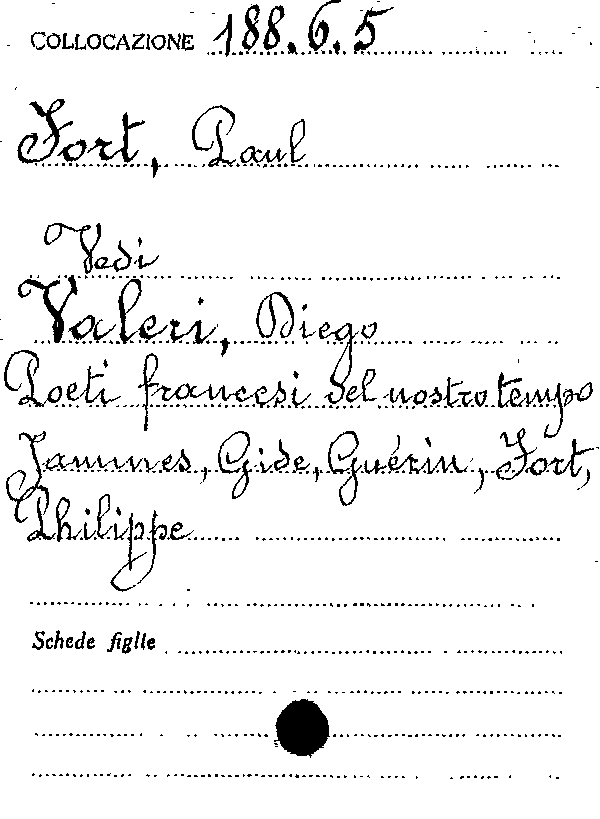 COLLOCAZIONE 188.6.5
Fort, Paul
Vedi
Valeri, Diego
Poeti francesi del nostro tempo
Jammes, Gide, Guérin, Fort,
Philippe
Schede figlie